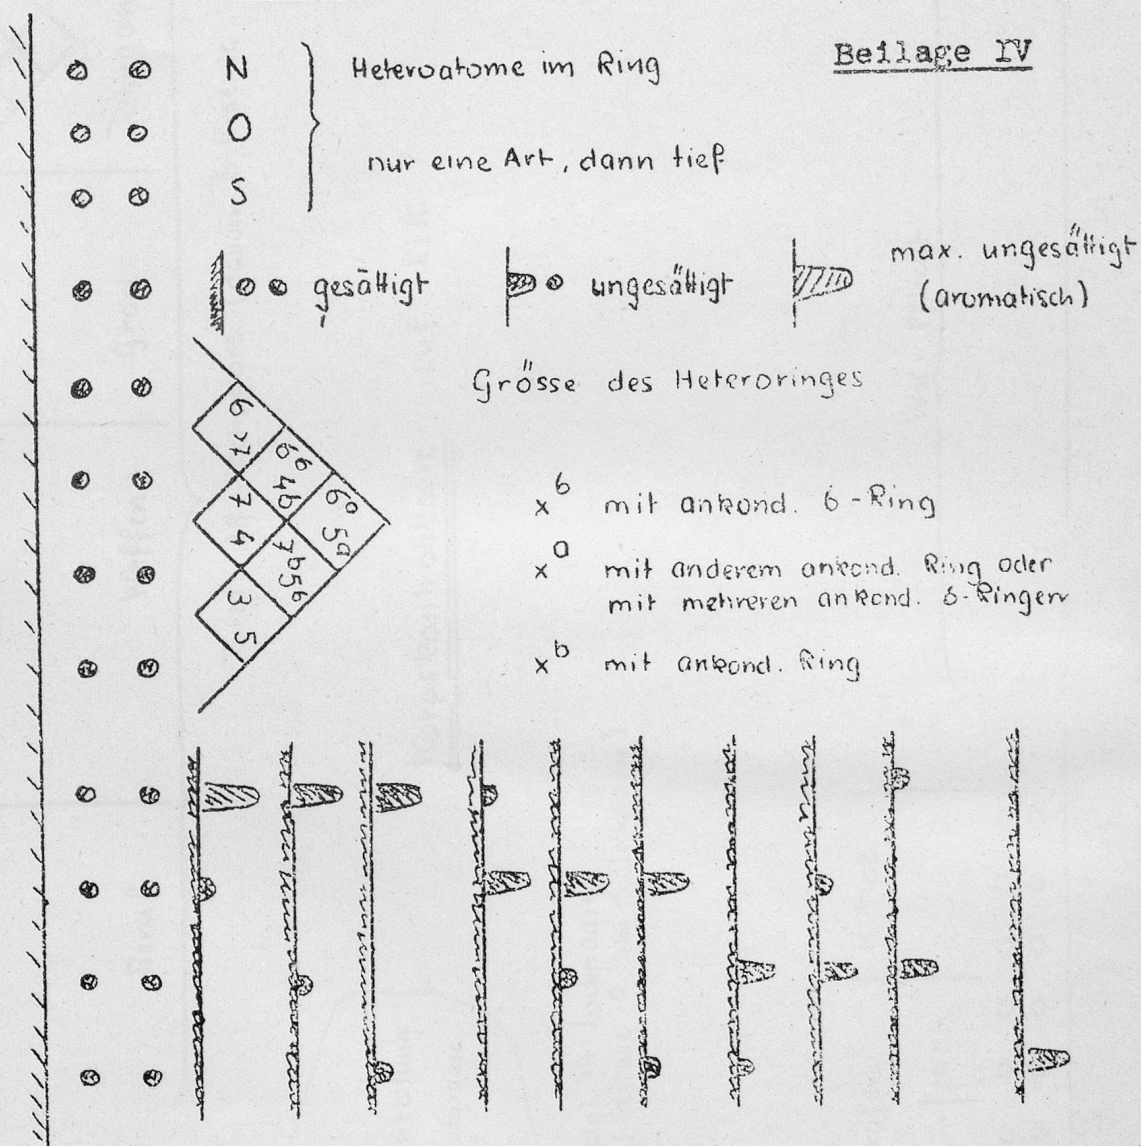 Beilage IV
N
O
S
Heteroatome im Ring
nur eine Art, dann tief
gesättigt
ungesättigt
max. ungesättigt
(aromatisch)
Grösse des Heteroringes
6 >7
6⁶ 4b
6a 5a
7 4
7b 5⁶
3 5
x⁶ mit ankond. 6-Ring
xᵃ mit anderem ankond. Ring oder
mit mehreren ankond. 6-Ringen
xᵇ mit ankond. Ring